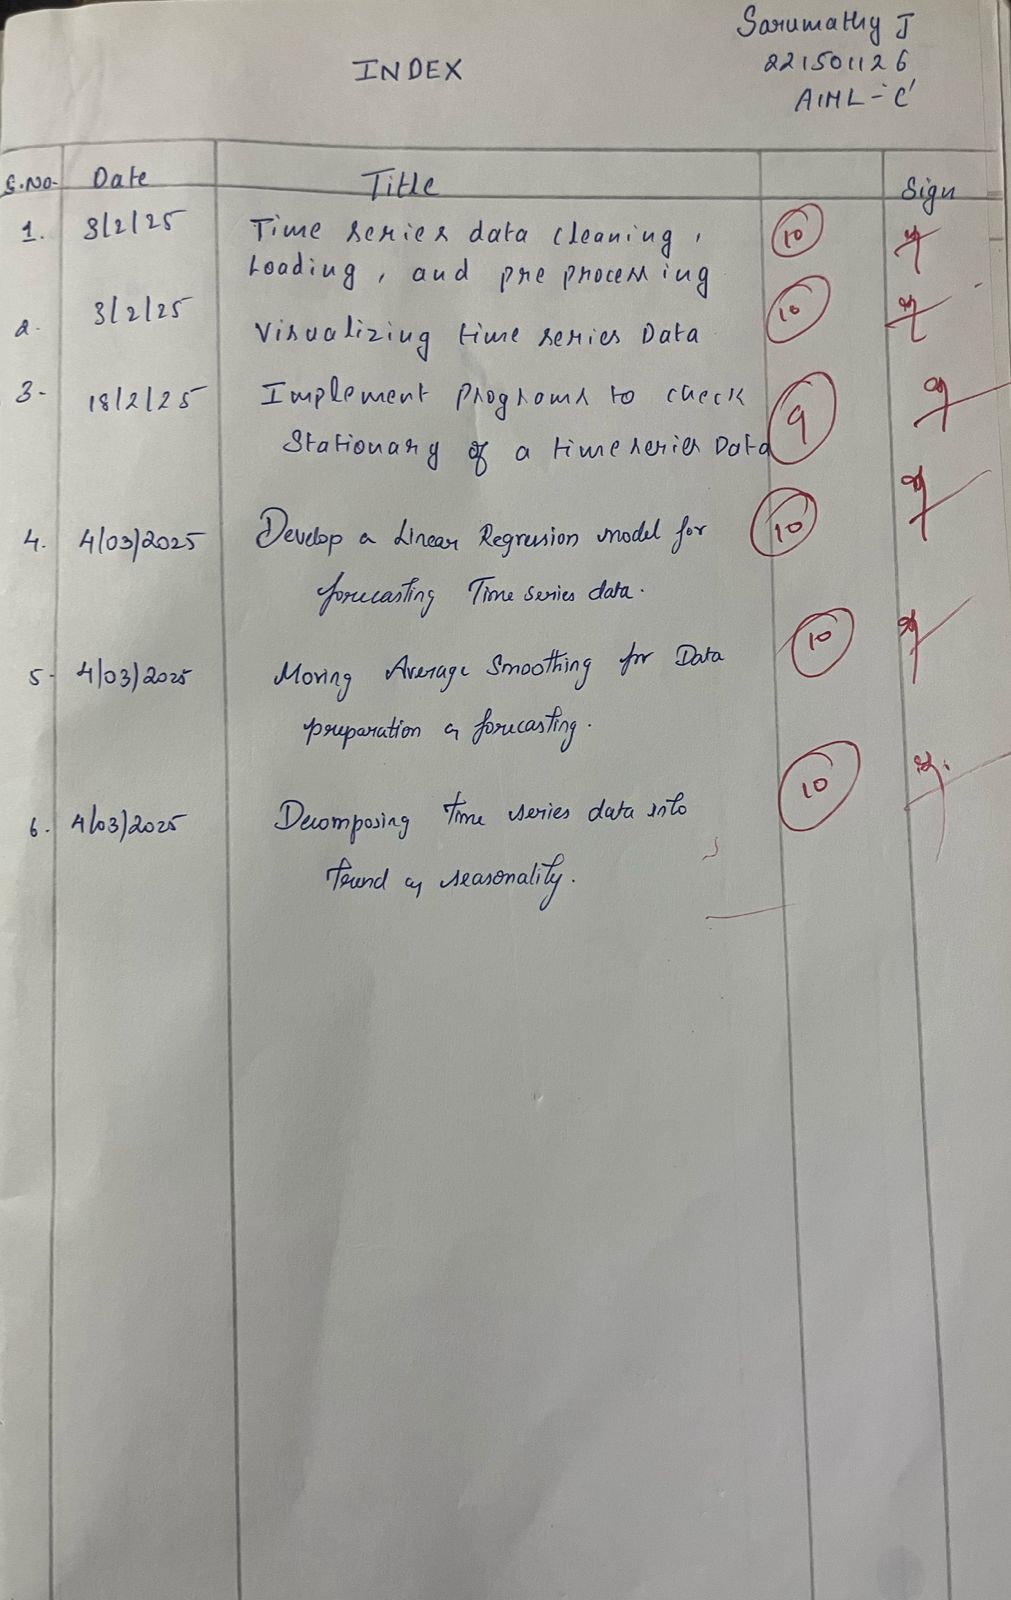 Sarumathy J
INDEX
221501126
AIML - 'C'
S.No. Date Title Sign
1. 3/2/25 Time series data cleaning, 10
loading, and pre processing
2. 3/2/25 Visualizing time series Data 10
3. 18/2/25 Implement programs to check 9
Stationary of a time series Data
4. 4/03/2025 Develop a Linear Regression model for 10
forecasting Time series data.
5. 4/03/2025 Moving Average Smoothing for Data 10
preparation & forecasting.
6. 4/03/2025 Decomposing time series data into 10
trend & seasonality.